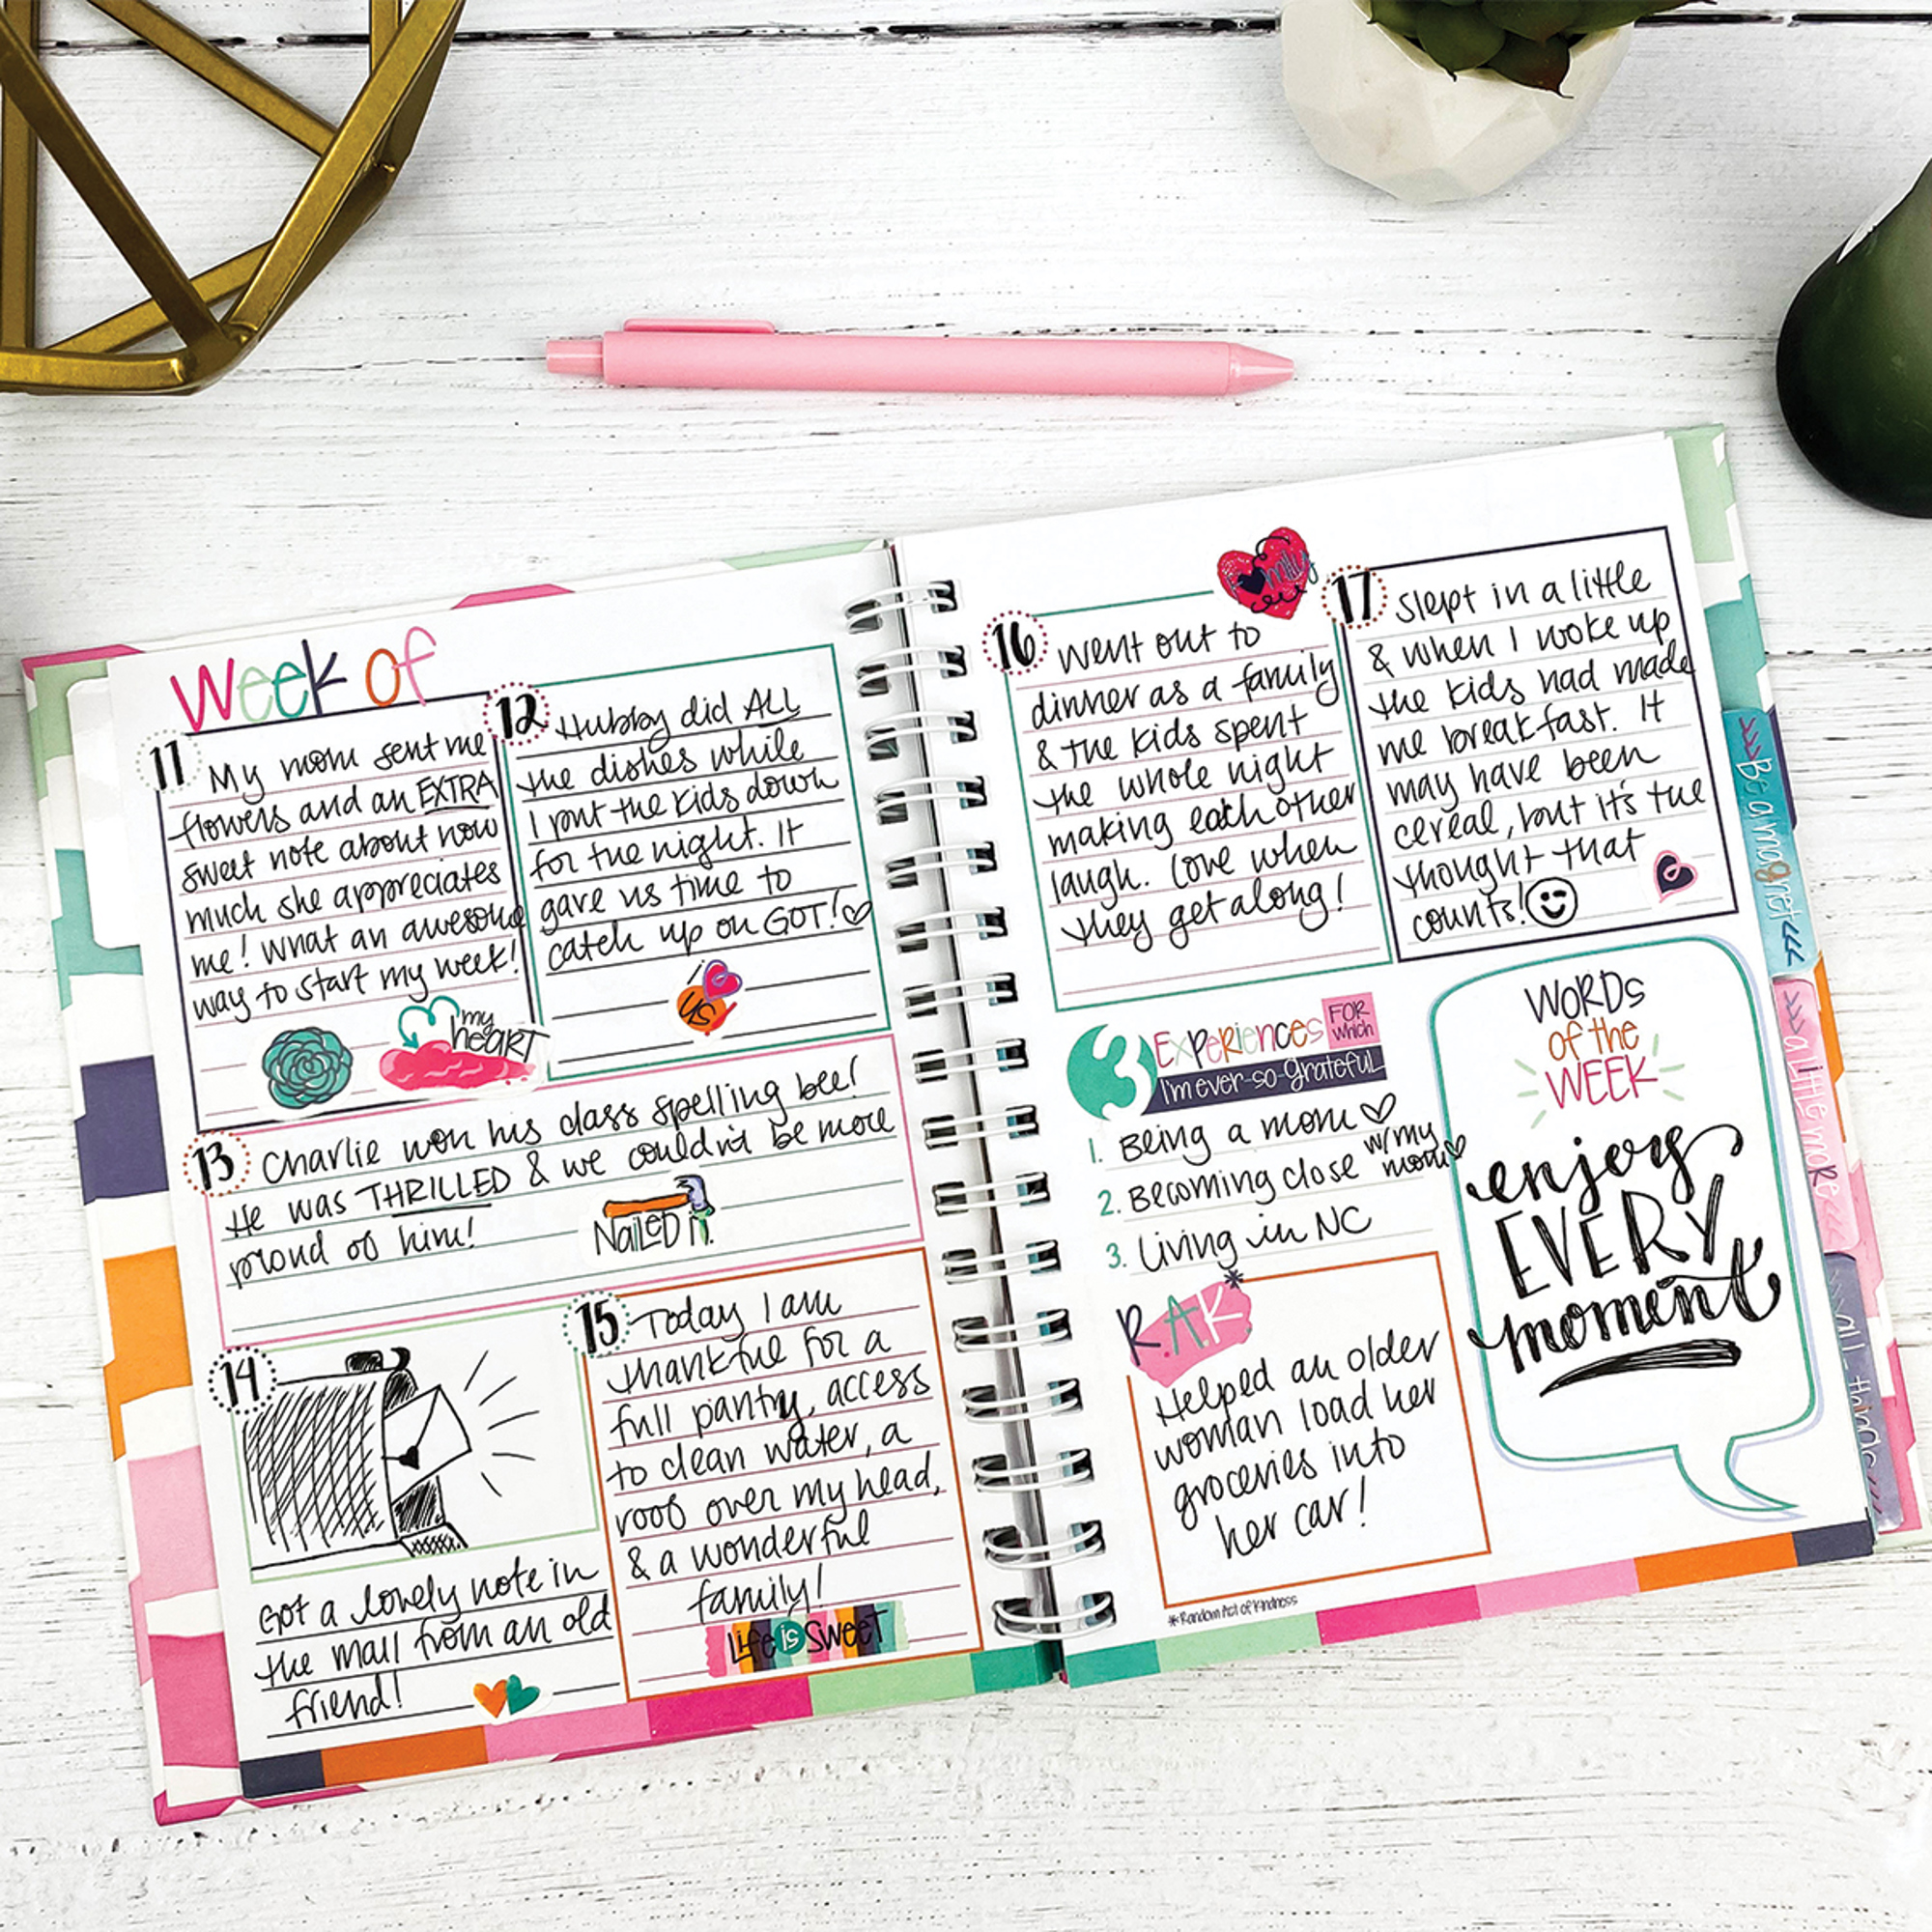 Week of
11
My mom sent me
flowers and an EXTRA
sweet note about how
much she appreciates
me! What an awesome
way to start my week!
my
heart
12
Hubby did ALL
the dishes while
I put the kids down
for the night. It
gave us time to
catch up on GOT!
us
13
Charlie won his class spelling bee!
He was THRILLED & we couldn't be more
proud of him!
Nailed it.
14
Got a lovely note in
the mail from an old
friend!
15
Today I am
thankful for a
full pantry, access
to clean water, a
roof over my head,
& a wonderful
family!
Life is Sweet
16
Went out to
dinner as a family
& the kids spent
the whole night
making each other
laugh. Love when
they get along!
family
17
Slept in a little
& when I woke up
the kids had made
me breakfast. It
may have been
cereal, but it's the
thought that
counts!
3 Experiences FOR which
I'm ever-so-grateful
1. Being a mom
2. Becoming close w/my mom
3. Living in NC
R.A.K*
Helped an older
woman load her
groceries into
her car!
*Random Act of Kindness
WORDS
of the
WEEK
enjoy
EVERY
moment
Be a magnet
a little more